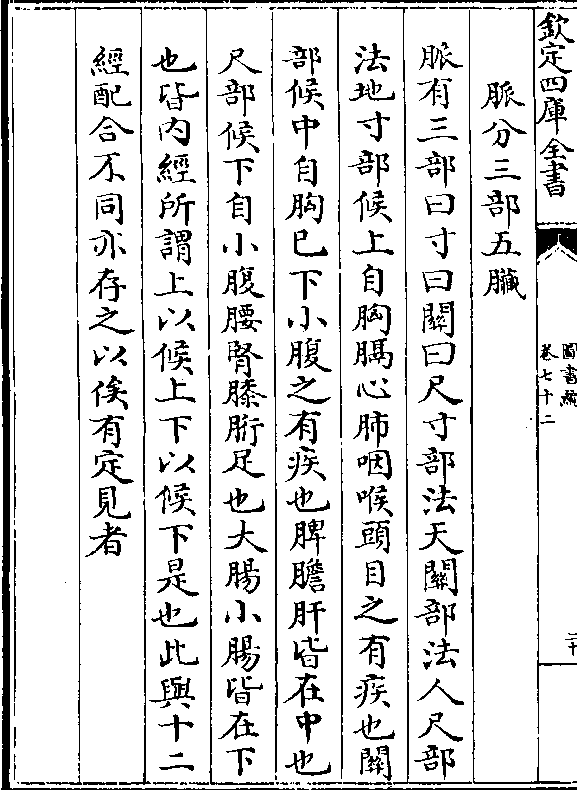 欽定四庫全書
圖書編
卷七十二
二十
脈分三部五臟
脈有三部曰寸曰關曰尺寸部法天關部法人尺部
法地寸部候上自胸膈心肺咽喉頭目之有疾也關
部候中自胸已下小腹之有疾也脾膽肝皆在中也
尺部候下自小腹腰腎膝胻足也大腸小腸皆在下
也皆內經所謂上以候上下以候下是也此與十二
經配合不同亦存之以俟有定見者